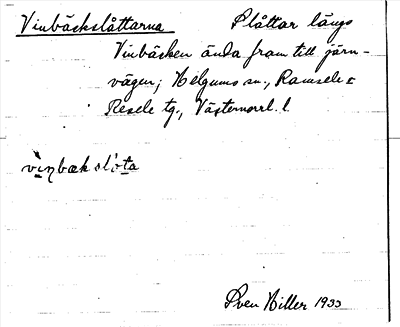 Vinbäckslåttarna Slåttar längs
Vinbäcken ända fram till järn-
vägen; Helgums sn., Ramsele o
Resele tg., Västernorrl. l.
vinbækslòta
Sven Hiller 1933